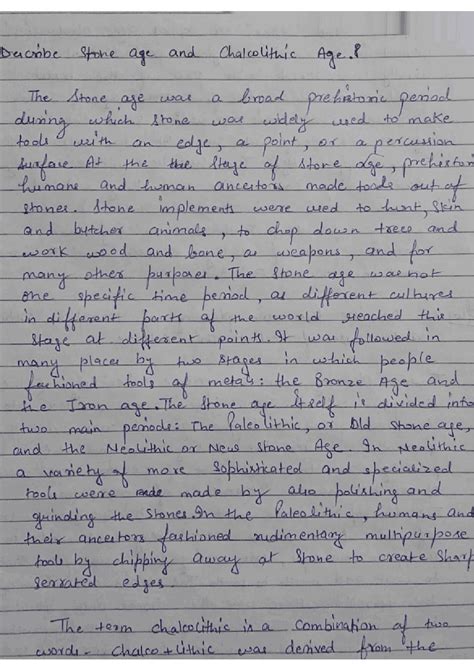 Describe Stone age and Chalcolithic Age.?
The Stone age was a broad prehistoric period
during which stone was widely used to make
tools with an edge, a point, or a percussion
surface. At the the stage of stone age, prehistoric
humans and human ancestors made tools out of
stones. Stone implements were used to hunt, skin
and butcher animals, to chop down trees and
work wood and bone, as weapons, and for
many other purposes. The Stone age was not
one specific time period, as different cultures
in different parts of the world reached this
stage at different points. It was followed in
many places by two stages in which people
fashioned tools of metals: the Bronze Age and
the Iron age. The Stone age itself is divided into
two main periods: The Paleolithic, or Old Stone age,
and the Neolithic or New Stone Age. In Neolithic
a variety of more sophisticated and specialized
tools were made made by also polishing and
grinding the stones. In the Paleolithic, humans and
their ancestors fashioned rudimentary multipurpose
tools by chipping away at stone to create sharp
serrated edges.
The term chalcolithic is a combination of two
words- Chalco+Lithic was derived from the